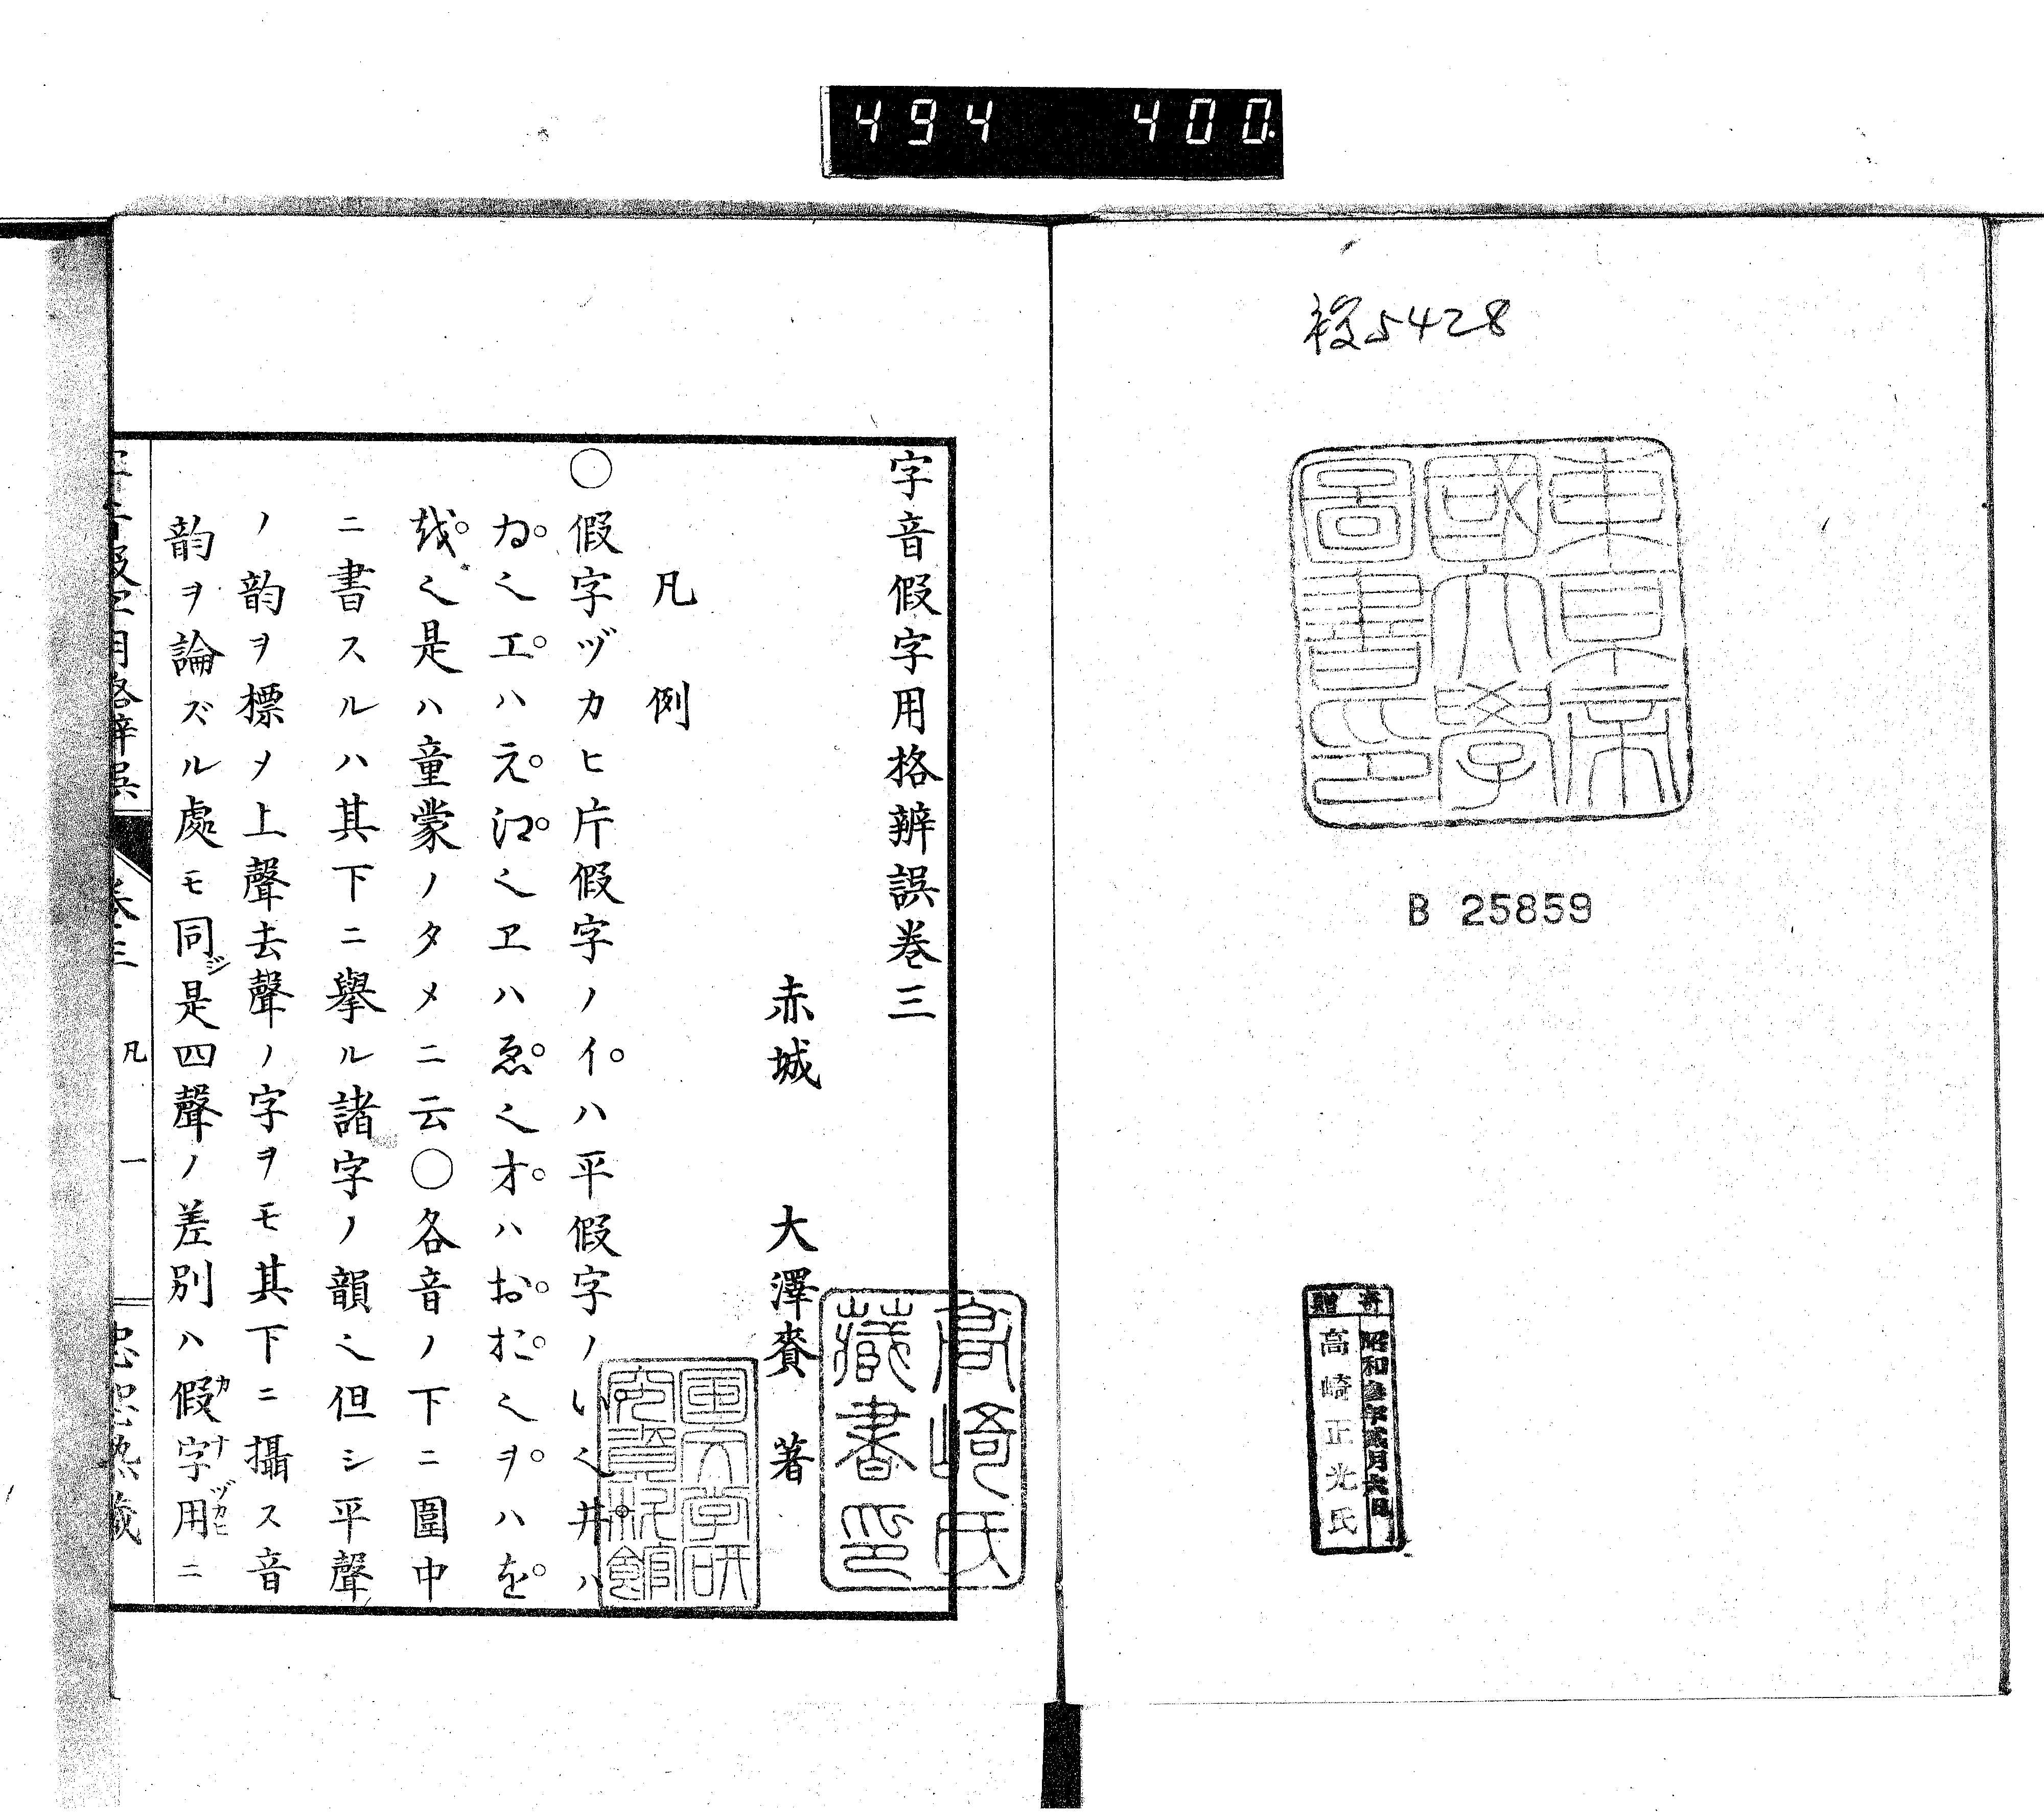 494 400
稜5428
東京帝
國大學
圖書印
B 25859
寄贈
昭和參年貳月六日
高崎正光氏
高崎氏
藏書印
字音假字用格辨誤巻三
赤城 大澤賚 著
凡例
〇假字ヅカヒ片假字ノイハ平假字ノい〱井ハ
ゐ〱エハえ江〱ヱハゑ〱オハおお〱ヲハを
越〱是ハ童蒙ノタメニ云〇各音ノ下ニ圍中
ニ書スルハ其下ニ擧ル諸字ノ韻〱但シ平聲
ノ韵ヲ標メ上聲去聲ノ字ヲモ其下ニ攝ス音
韵ヲ論ズル處モ同ジ是四聲ノ差別ハ假字用ニ
カナヅカヒ
字音假字用格辨誤
巻三 凡 一